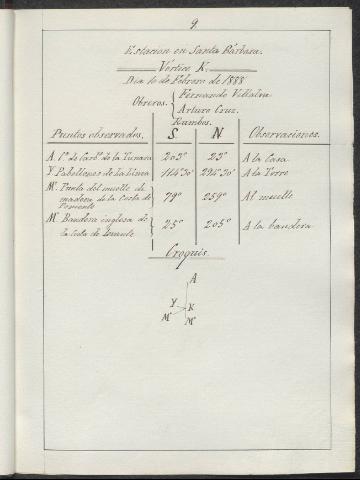 9
Estacion en Santa Bárbara.
Vértice K.
Dia 10 de Febrero de 1888
Obreros. { Fernando Villalva
Arturo Cruz.
Rumbos.
Puntos observados. S N Observaciones.
A. Cª de Carbs de la Tunara 203° 23° A la Casa
Y. Pabellones de la Linea 114°30' 294°30' A la Torre
M'. Punta del muelle de
madera de la Costa de
Poniente 79° 259° Al muelle
M". Bandera inglesa de
la Costa de Levante 25° 205° A la bandera
Croquis.
A
Y K
M' M"